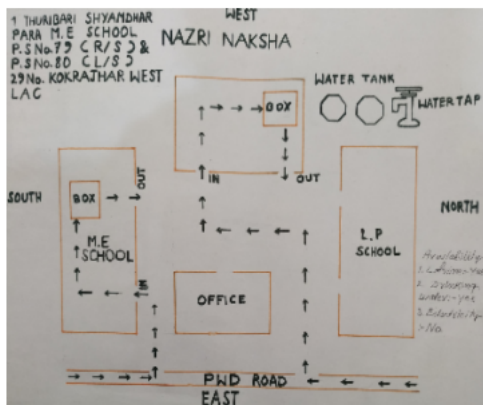 1 THURIBARI SHYANDHAR
PARA M.E SCHOOL
P.S No.79 (R/S) &
P.S No.80 (L/S)
29 No. KOKRAJHAR WEST
LAC
WEST
NAZRI NAKSHA
WATER TANK
WATER TAP
BOX
IN
OUT
SOUTH
BOX
OUT
M.E
SCHOOL
IN
NORTH
L.P
SCHOOL
OFFICE
Availability
1.
2. Drinking
water:-yes
3. Electricity
:- No
PWD ROAD
EAST